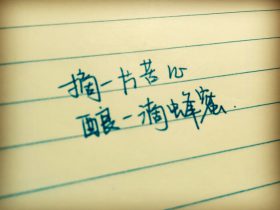 摘一片苦心
酿一滴蜂蜜.